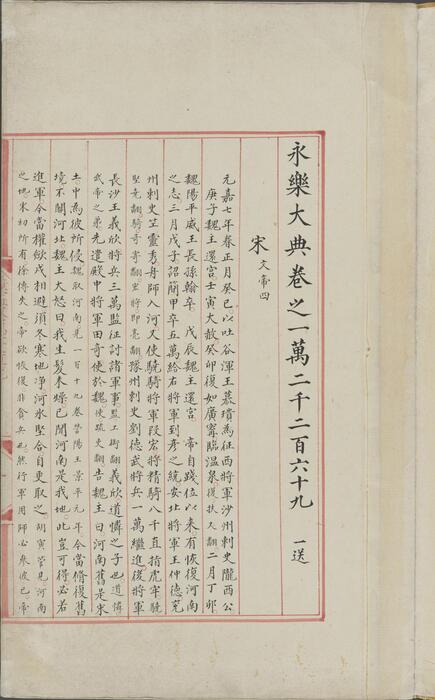 永樂大典卷之一萬二千二百六十九 一送
宋 文帝四
元嘉七年春正月癸巳以吐谷渾王慕璝為征西將軍沙州刺史隴西公
庚子魏主還宮壬寅大赦癸卯復如廣寧臨溫泉復扶又翻二月丁卯
魏陽平威王長孫翰卒 戊辰魏主還宮 帝自踐位以來有恢復河南
之志三月戊子詔簡甲卒五萬給右將軍到彥之統安北將軍王仲德兗
州刺史竺靈秀舟師入河又使驍騎將軍段宏將精騎八千直指虎牢驍
堅堯翻騎奇寄翻宏將即亮翻豫州刺史劉德武將兵一萬繼進後將軍
長沙王義欣將兵三萬監征討諸軍事監工銜翻義欣道憐之子也道憐
武帝之弟先遣殿中將軍田奇使於魏使疏吏翻告魏主曰河南舊是宋
土中為彼所侵魏取河南見一百十九卷營陽王景平元年今當脩復舊
境不關河北魏主大怒曰我生髮未燥已聞河南是我地此豈可得必若
進軍今當權斂戍相避須冬寒地淨河冰堅合自更取之胡寅管見河南
之地宋初所有徐傅失之帝欲恢復非貪兵也然行軍用師必參彼己帝